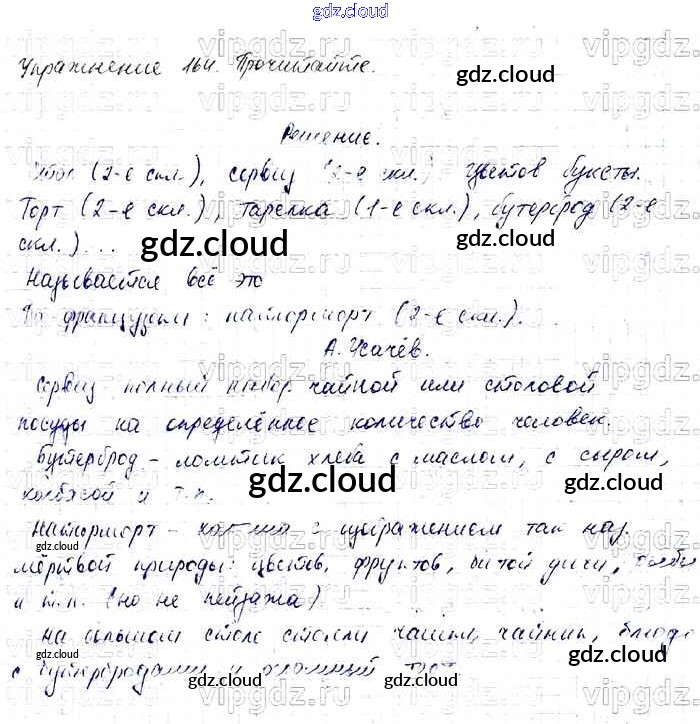 gdz.cloud
Упражнение 164. Прочитайте.
gdz.cloud
Решение.
(2-е скл.), сервиз (2-е скл.) Цветов букеты.
Торт (2-е скл.), тарелка (1-е скл.), бутерброд (2-е
gdz.cloud
скл.)...
gdz.cloud
Называется всё это
По-французски: натюрморт (2-е скл.).
gdz.cloud
А. Усачёв.
Сервиз полный набор чайной или столовой
посуды на определённое количество человек.
Бутерброд - ломтик хлеба с маслом, с сыром,
gdz.cloud
gdz.cloud
колбасой и т.п.
gdz.cloud
Натюрморт - с изображением так наз.
gdz.cloud
gdz.cloud
мёртвой природы: цветов, фруктов, битой дичи, рыбы
и т.п. (но не пейзажа)
на большом столе стояли чашки, чайник, блюдо
gdz.cloud
gdz.cloud
с бутербродами и торт
gdz.cloud